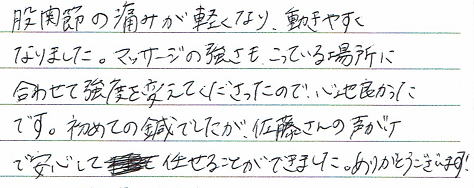 股関節の痛みが軽くなり、動きやすく
なりました。マッサージの強さも、こっている場所に
合わせて強度を変えてくださったので、心地良かった
です。初めての鍼でしたが、佐藤さんの声がけ
で安心して任せることができました。ありがとうございます!